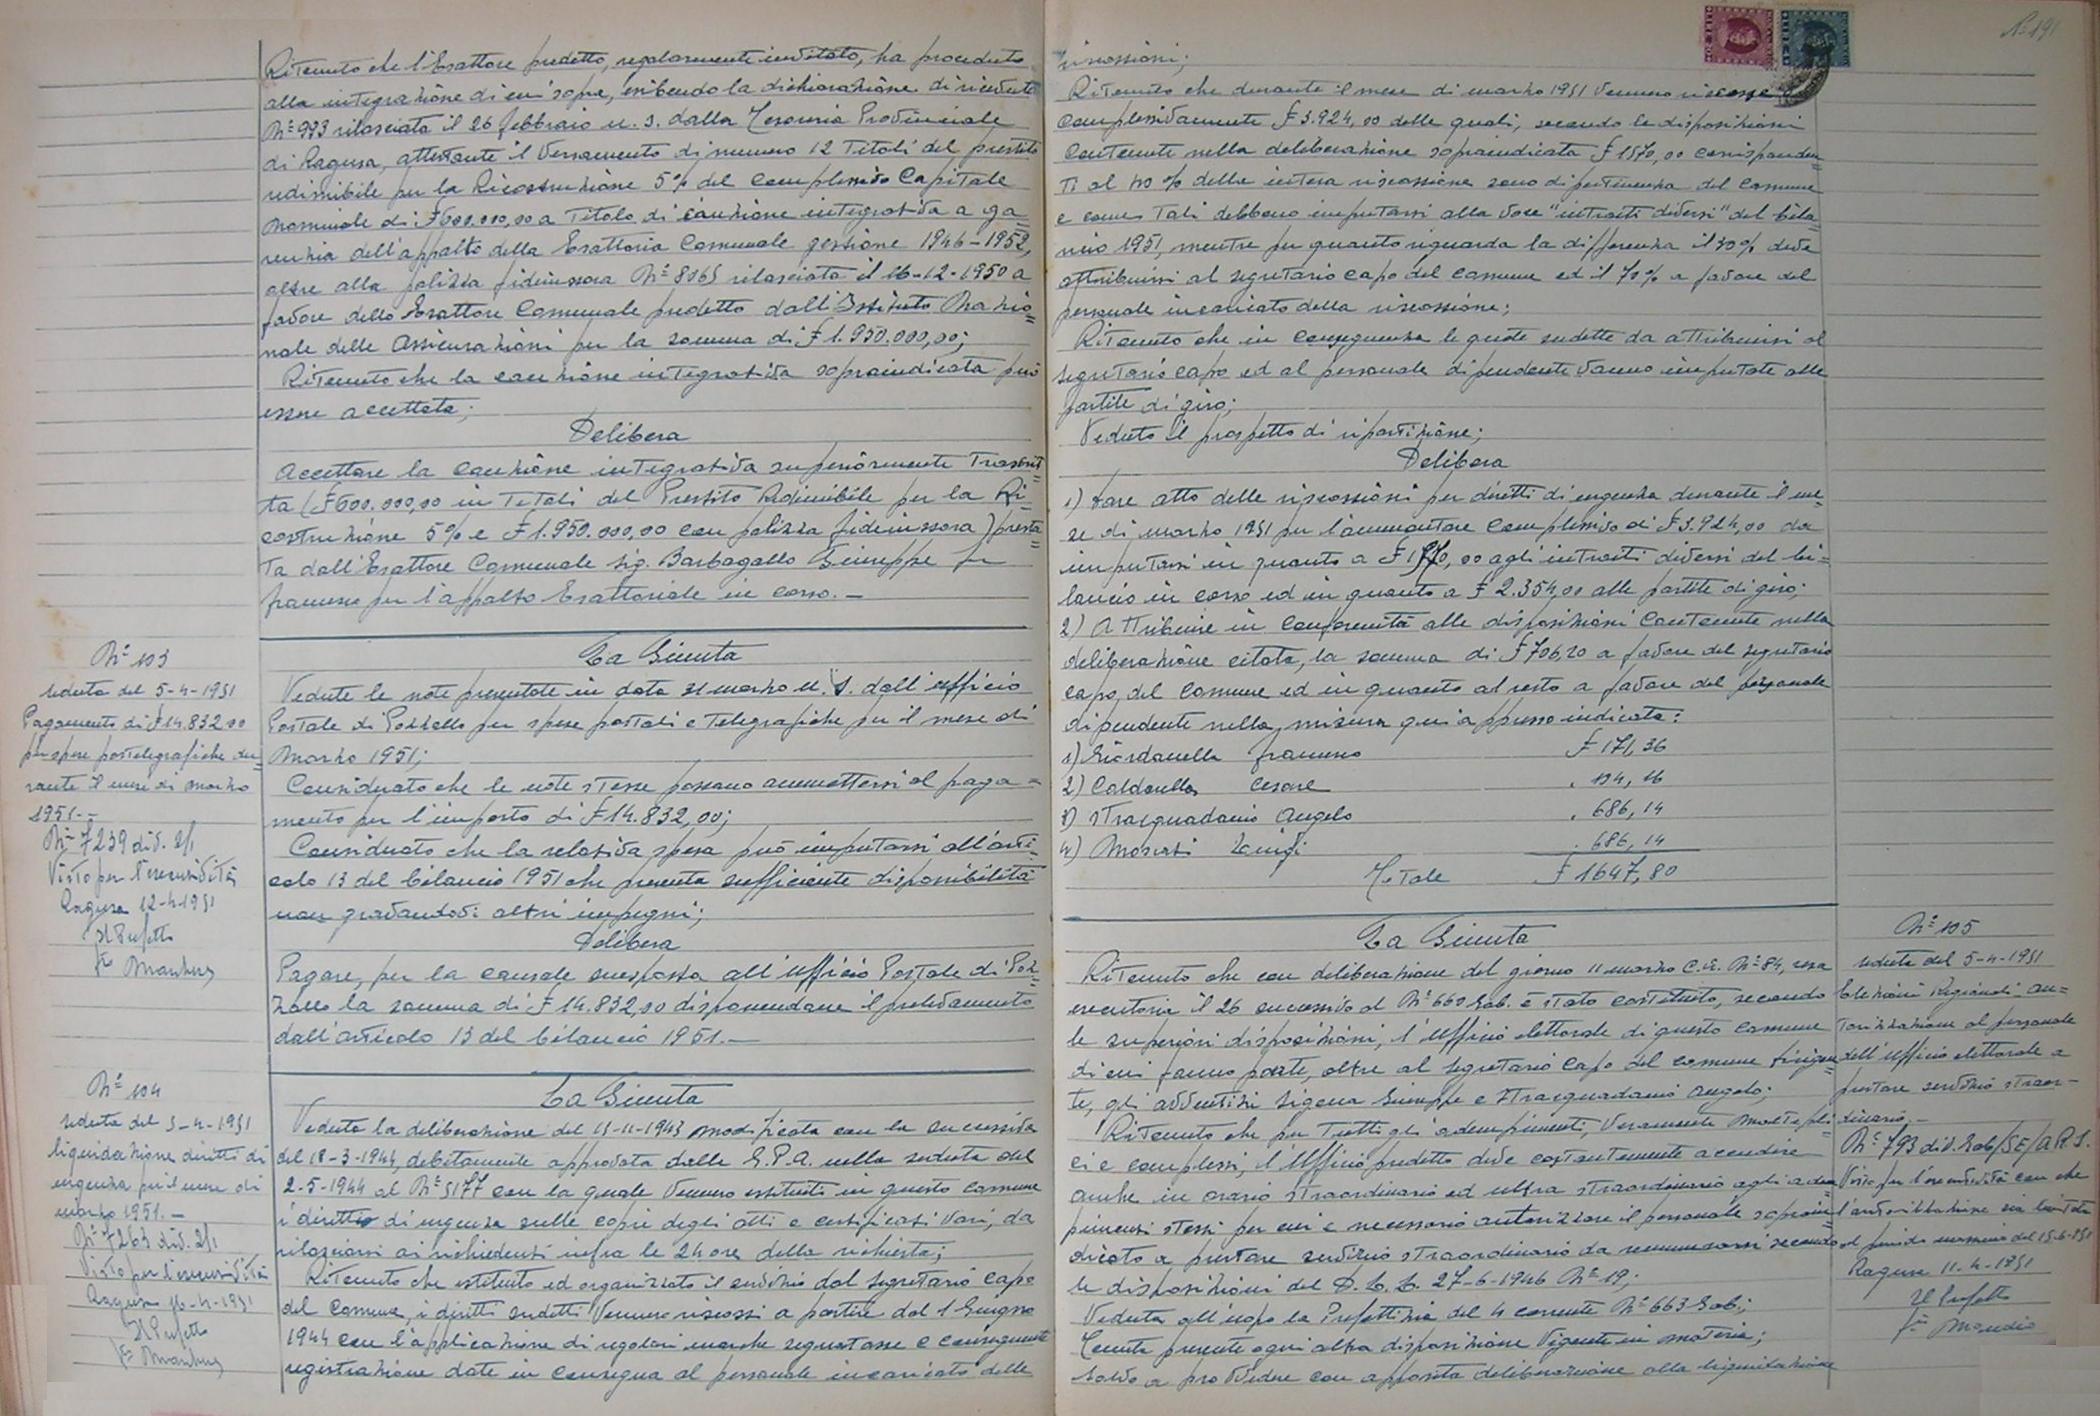 Ritenuto che l'Esattore predetto, regolarmente invitato, ha proceduto
alla integrazione di cui sopra, esibendo la dichiarazione di ricevuta
N° 993 rilasciata il 26 febbraio u. s. dalla Tesoreria Provinciale
di Ragusa, attestante il versamento di numero 12 Titoli del prestito
redimibile per la Ricostruzione 5% del complessivo Capitale
nominale di £ 600.000,00 a Titolo di cauzione integrativa a ga=
ranzia dell'appalto della Esattoria Comunale gestione 1946-1952,
oltre alla polizza fideiussora N° 8065 rilasciata il 16-12-1950 a
favore dello Esattore Comunale predetto dall'Istituto Nazio=
nale delle Assicurazioni per la somma di £ 1.950.000,00;
Ritenuto che la cauzione integrativa sopraindicata può
essere accettata;
Delibera
Accettare la cauzione integrativa superiormente Trascrit=
ta (£ 600.000,00 in Titoli del Prestito Redimibile per la Ri=
costruzione 5% e £ 1.950.000,00 con polizza fideiussora) presta=
ta dall'Esattore Comunale Sig. Barbagallo Giuseppe fu
Francesco per l'appalto Esattoriale in corso. —
N° 103
seduta del 5-4-1951
Pagamento di £ 14.832,00
per spese postelegrafiche du=
rante il mese di marzo
1951. -
N° 7239 div. 2/1
Visto per l'esecutività
Ragusa 12-4-1951
Il Prefetto
La Giunta
Vedute le note presentate in data 31 marzo u. s. dall'ufficio
Postale di Pozzallo per spese postali e Telegrafiche per il mese di
Marzo 1951;
Considerato che le note stesse possono ammettersi al paga=
mento per l'importo di £ 14.832,00;
Considerato che la relativa spesa può imputarsi all'arti=
colo 13 del bilancio 1951 che presenta sufficiente disponibilità
non gravandovi altri impegni;
Delibera
Pagare, per la causale suesposta all'Ufficio Postale di Poz=
zallo la somma di £ 14.832,00 disponendone il prelevamento
dall'articolo 13 del bilancio 1951. —
N° 104
seduta del 5-4-1951
liquidazione diritti di
urgenza per il mese di
marzo 1951. —
N° 7263 div. 2/1
Visto per l'esecutività
Ragusa 16-4-1951
Il Prefetto
La Giunta
Veduta la deliberazione del 15-11-1943 modificata con la successiva
del 18-3-1944, debitamente approvata dalla G.P.A. nella seduta del
2-5-1944 al N° 5177 con la quale vennero istituiti in questo comune
i diritti di urgenza sulle copie degli atti e certificati vari, da
rilasciarsi ai richiedenti infra le 24 ore della richiesta;
Ritenuto che istituito ed organizzato il servizio dal Segretario capo
del Comune, i diritti sudetti vennero riscossi a partire dal 1 Giugno
1944 con l'applicazione di regolari marche segnatasse e conseguente
registrazione date in consegna al personale incaricato delle
N° 191
riscossioni;
Ritenuto che durante il mese di marzo 1951 vennero riscosse
complessivamente £ 3.924,00 delle quali, secondo le disposizioni
contenute nella deliberazione sopraindicata £ 1570,00 corrisponden=
ti al 40% della intera riscossione sono di pertinenza del Comune
e come Tali debbono imputarsi alla voce "introiti diversi" del bila=
ncio 1951, mentre per quanto riguarda la differenza il 30% deve
attribuirsi al segretario capo del comune ed il 70% a favore del
personale incaricato della riscossione;
Ritenuto che in conseguenza le quote sudette da attribuirsi al
segretario capo ed al personale dipendente vanno imputate alle
partite di giro;
Veduto il prospetto di ripartizione;
Delibera
1) Dare atto delle riscossioni per diritti di urgenza durante il me=
se di marzo 1951 per l'ammontare complessivo di £ 3.924,00 da
imputarsi in quanto a £ 1570,00 agli introiti diversi del bi=
lancio in corso ed in quanto a £ 2.354,00 alle partite di giro;
2) Attribuire in conformità alle disposizioni contenute nella
deliberazione citata, la somma di £ 706,20 a favore del segretario
capo del Comune ed in quanto al resto a favore del personale
dipendente nella misura qui appresso indicata:
1) Giordanella Francesco £ 171,36
2) Caldarella Cesare " 104,16
3) Stracquadanio Angelo " 686,14
4) Moscati Luigi " 686,14
Totale £ 1647,80
La Giunta
Ritenuto che con deliberazione del giorno 11 marzo c.a. N° 84, resa
esecutoria il 26 successivo al N° 660 Gab. è stato costituito, secondo
le superiori disposizioni, l'Ufficio elettorale di questo comune
di cui fanno parte, oltre al segretario Capo del comune dirigen=
te, gli avventizi Sigona Giuseppe e Stracquadanio Angelo;
Ritenuto che per Tutti gli adempimenti, veramente molteplici
ci e complessi, l'Ufficio predetto deve costantemente accudire
anche in orario straordinario ed ultra straordinario agli adem=
pimenti stessi per cui è necessario autorizzare il personale soprain=
dicato a prestare servizio straordinario da remunerarsi secondo
le disposizioni del D.L.L. 27-6-1946 N° 19;
Veduta all'uopo la Prefettizia del 4 corrente N° 663 Gab;
Tenuta presente ogni altra disposizione vigente in materia;
Salvo a provvedere con apposita deliberazione alla liquidazione
N° 105
seduta del 5-4-1951
Elezioni Regionali - au=
torizzazione al personale
dell'Ufficio elettorale a
prestare servizio straor-
dinario -
N° 793 div. Gab/SE/A.R.S.
Visto per l'esecutività con che
l'autorizzazione sia limitata
al periodo massimo del 15-6-1951
Ragusa 11-4-1951
Il Prefetto